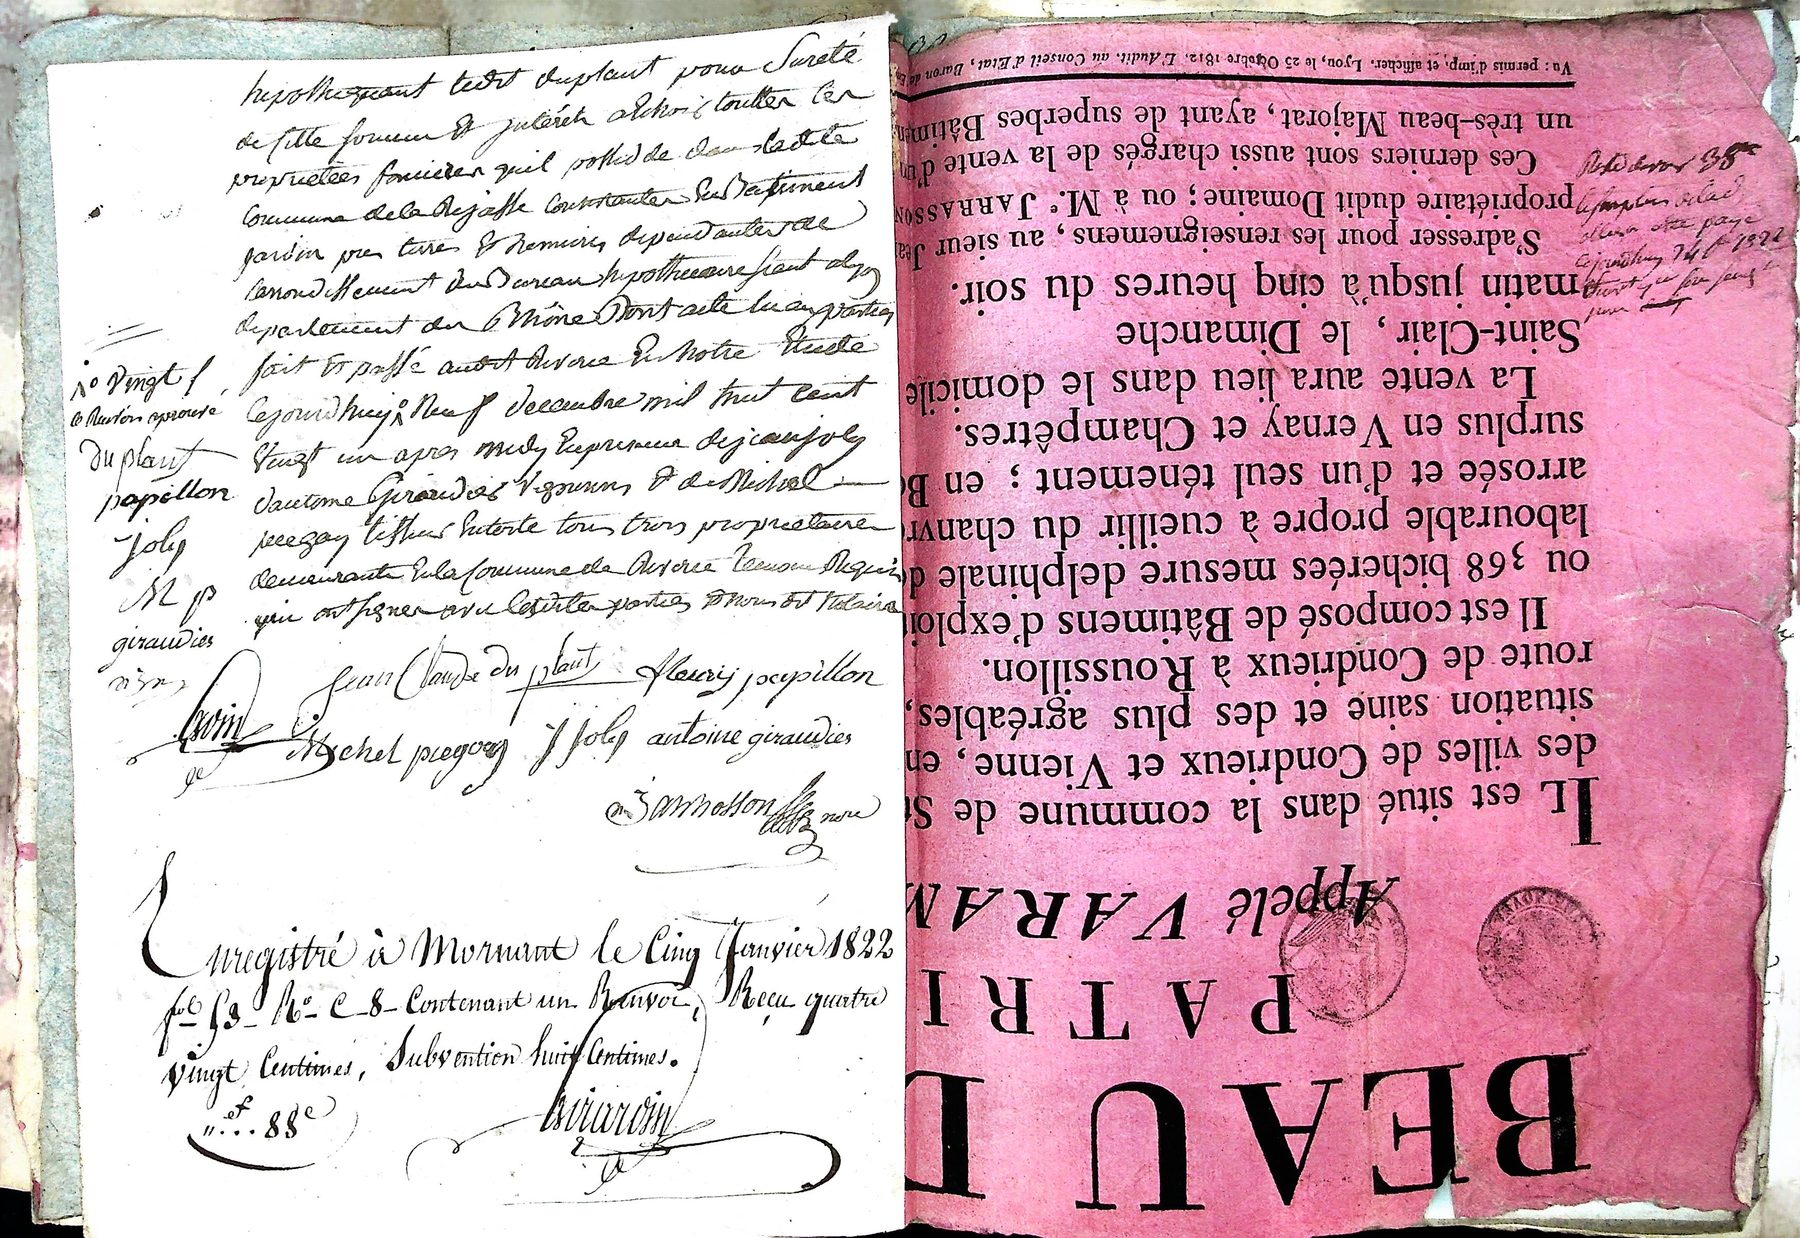 hipothequant ledit duplant pour sureté
de cette somme et intérêts a échoir toutes les
proprietées foncieres quil possede dans ladite
commune de la Rejasse consistantes en batiment
jardin pres terres et dependantes de
larrondissement du Bureau hipothecaire séant a Lyon
departement du Rhône Dont acte lu aux parties
fait et passé audit Riverie en notre Etude
cejourdhuy neuf decembre mil huit cent
vingt un apres midy en presence de jean joly
dantoine Giraudies vignerons et de Michel
piegay tisseur en toile tous trois proprietaires
demeurants en la Commune de Riverie temoins Requis
qui ont signer avec lesdites parties et nous dit Notaire
No vingt
ce Renvoi aprouvé
Duplant
papillon
joly
M p
giraudies
Jean Claude du plant fleury papillon
Michel piegay J joly antoine giraudies
Jarrosson nore
Enregistré à Mornant le Cinq Janvier 1822
fol 53 Ro C 8 Contenant un Renvoi, Reçu quatre
vingt Centimes, Subvention huit Centimes.
88c
Girardin
BEAU D
PATRI
Appelé VARAM
IL est situé dans la commune de S
des villes de Condrieux et Vienne, en
situation saine et des plus agréables,
route de Condrieux à Roussillon.
Il est composé de Bâtimens d'exploit
ou 368 bicherées mesure delphinale d
labourable propre à cueillir du chanvr
arrosée et d'un seul ténement ; en B
surplus en Vernay et Champêtres.
La vente aura lieu dans le domicile
Saint-Clair, le Dimanche
matin jusqu'à cinq heures du soir.
S'adresser pour les renseignemens, au sieur Jea
propriétaire dudit Domaine ; ou à M.e JARRASSON
Ces derniers sont aussi chargés de la vente d'un
un très-beau Majorat, ayant de superbes Bâtimen
Vu : permis d'imp. et afficher. Lyon, le 25 Octobre 1812. L'Audit. au Conseil d'Etat, Baron de